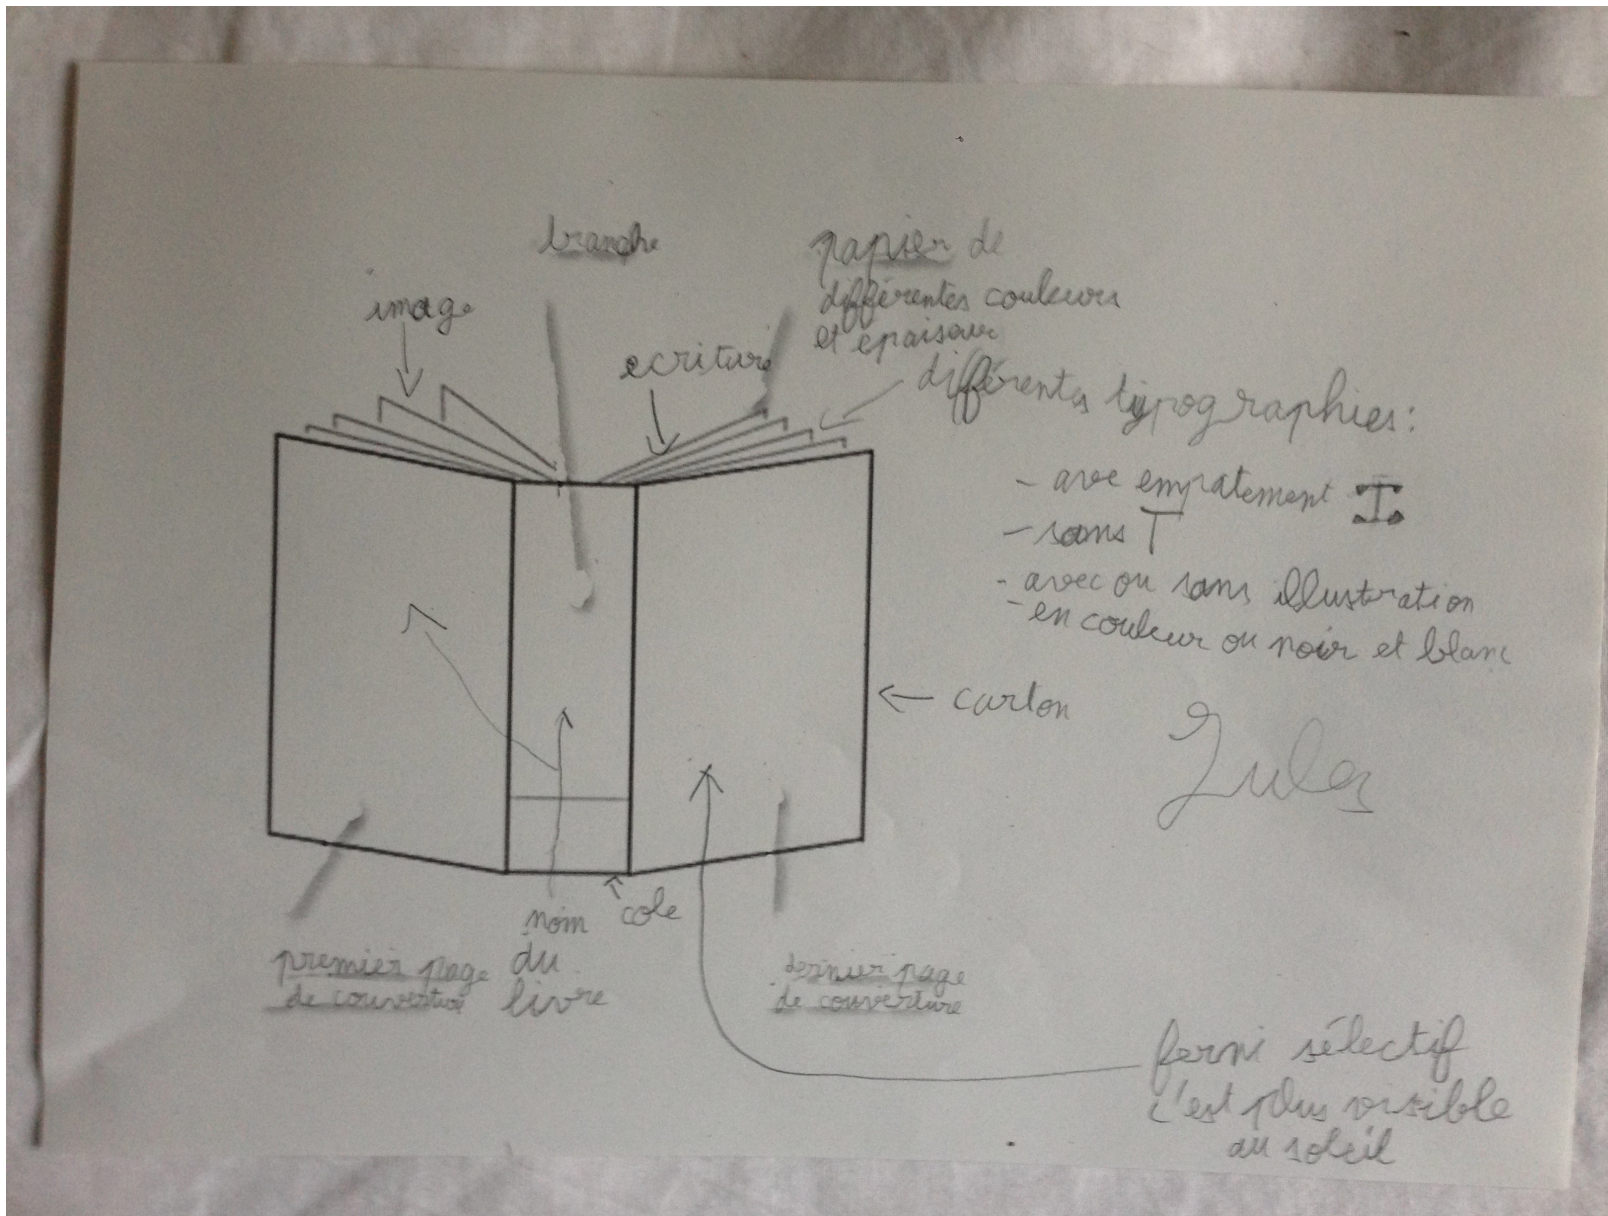 tranche
image
papier de
différentes couleurs
et epaiseur
ecriture
différentes typographies:
- ave empatement I
- sans T
- avec ou sans illustration
- en couleur ou noir et blanc
carton
Jules
nom
du
livre
cole
premier page
de couverture
dernier page
de couverture
ferni sélectif
c'est plus visible
au soleil